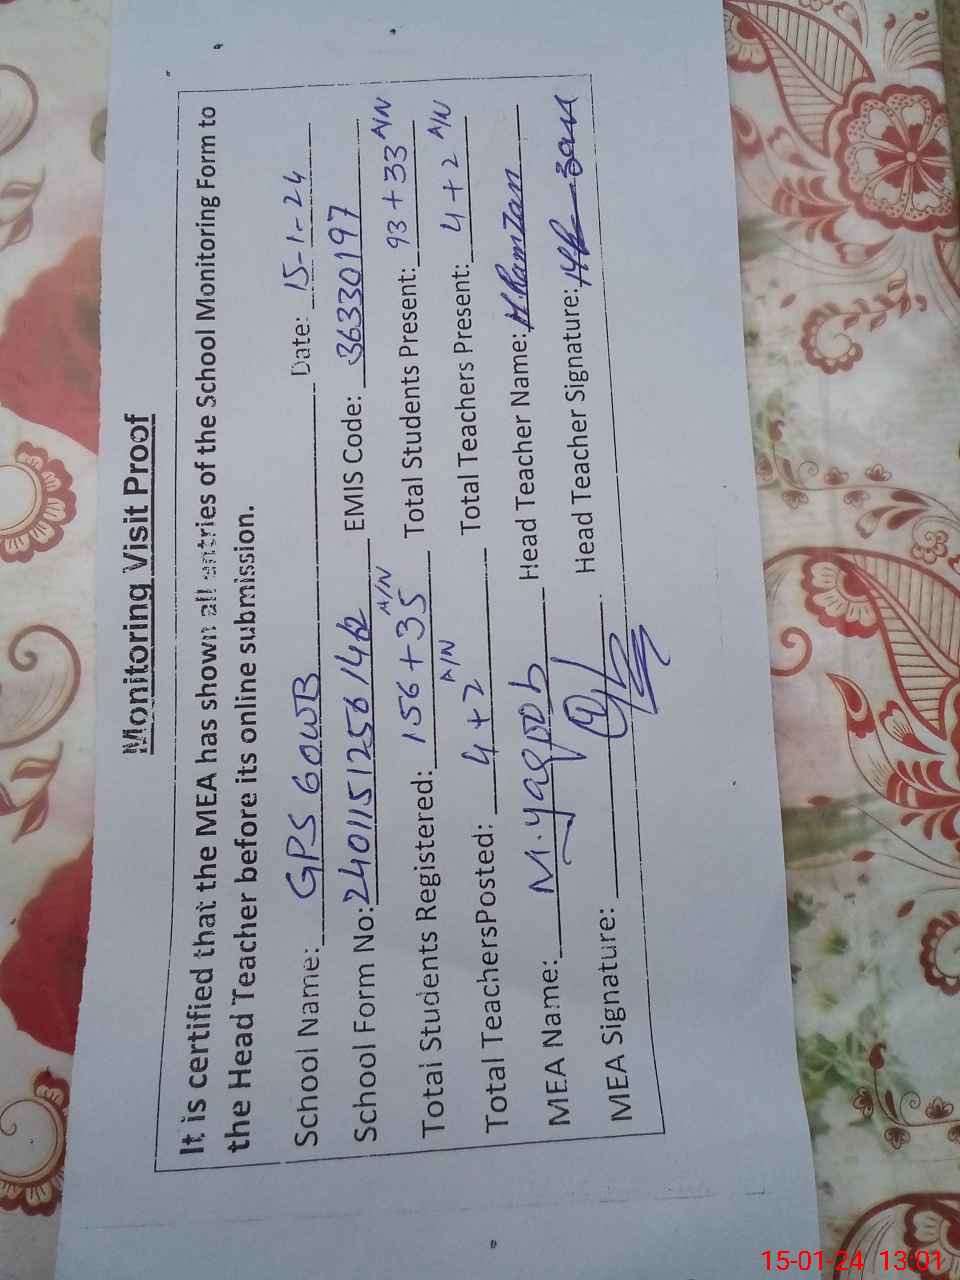 Monitoring Visit Proof
It is certified that the MEA has shown all entries of the School Monitoring Form to
the Head Teacher before its online submission.
School Name: GPS 60WB Date: 15-1-24
School Form No: EMIS Code: 36330197
Total Students Registered: 156 + 35 A/N Total Students Present: 93 + 33 A/N
Total TeachersPosted: 4 + 2 A/N Total Teachers Present: 4 + 2 A/N
MEA Name: M. yaqoob Head Teacher Name: M. Ramzan
MEA Signature: Head Teacher Signature:
15-01-24 13:01